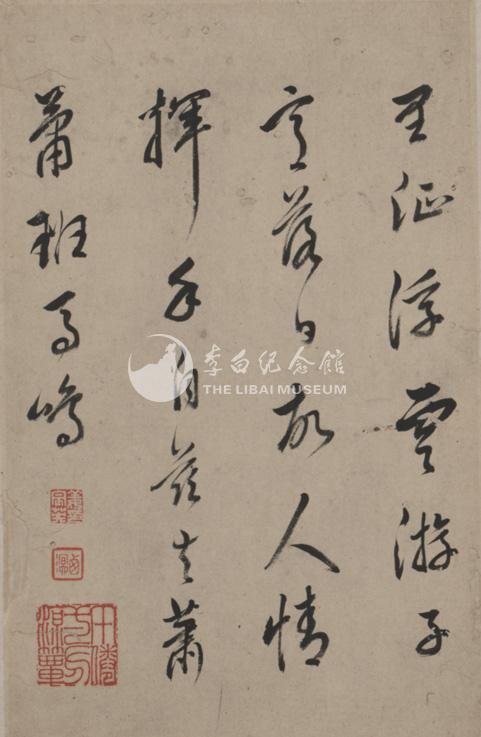 里征浮雲游子
意落日故人情
揮手自茲去蕭
蕭班馬鳴
李白纪念馆
THE LIBAI MUSEUM